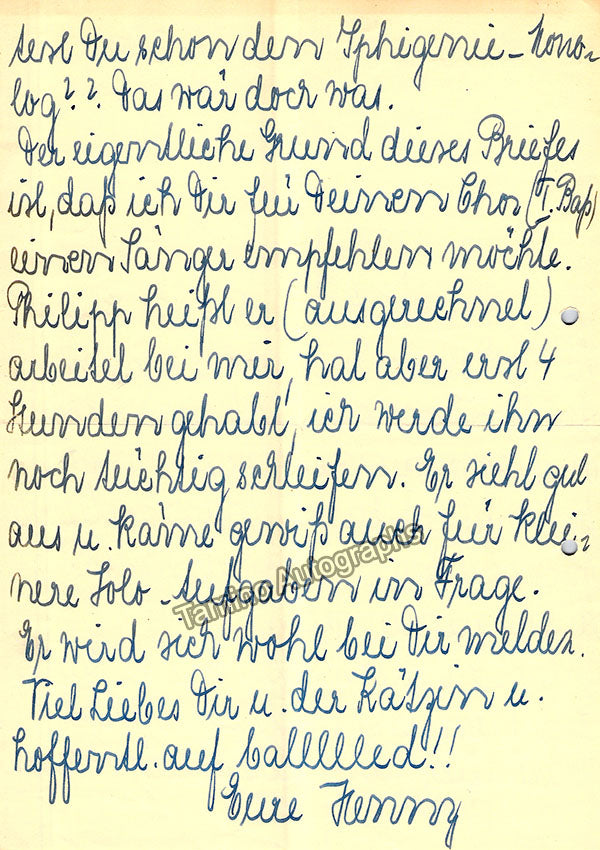 test Du schon den Iphigenie-Mono-
log?? Das wär doch was.
Der eigentliche Grund dieses Briefes
ist, daß ich Dir für Deinen Chor (I. Baß)
einen Sänger empfehlen möchte.
Philipp heißt er (ausgerechnet)
arbeitet bei mir, hat aber erst 4
Stunden gehabt, ich werde ihn
noch tüchtig schleifen. Er sieht gut
aus u. käme gewiß auch für klei-
nere Solo-Aufgaben in Frage.
Tamino Autographs
Er wird sich wohl bei Dir melden.
Viel Liebes Dir u. der Kätzin u.
hoffentl. auf balllllled!!
Eure Henny